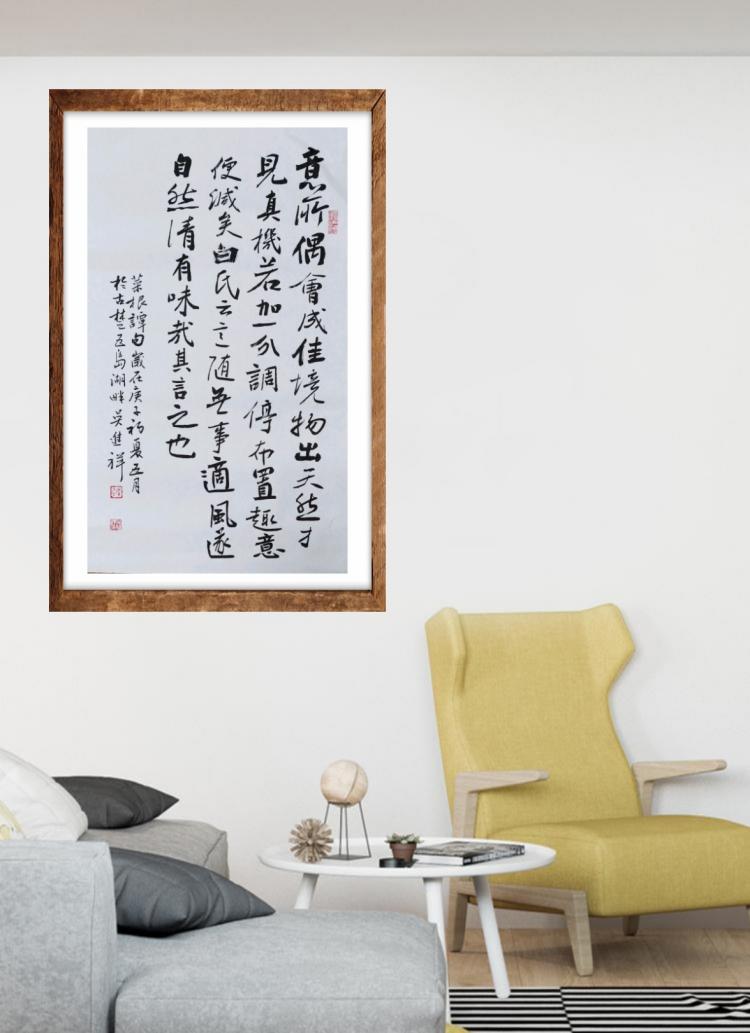 意所偶會成佳境物出天然才
見真機若加一分調停布置趣意
便減矣白氏云意随無事適風逐
自然清有味哉其言之也
菜根譚句歲在庚子初夏五月
於古楚五島湖畔吴進祥